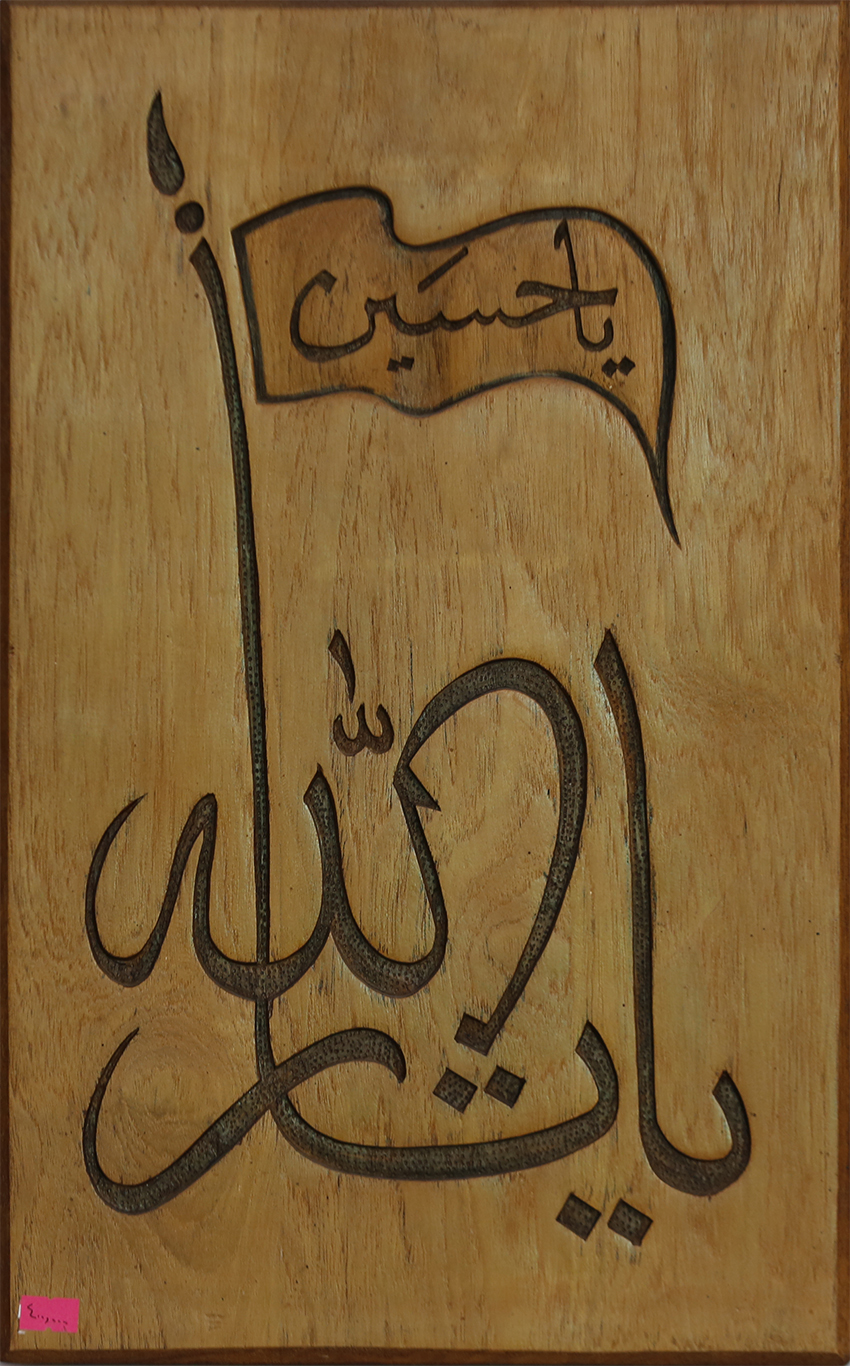 یا حسَین
یا ثار اللّٰه